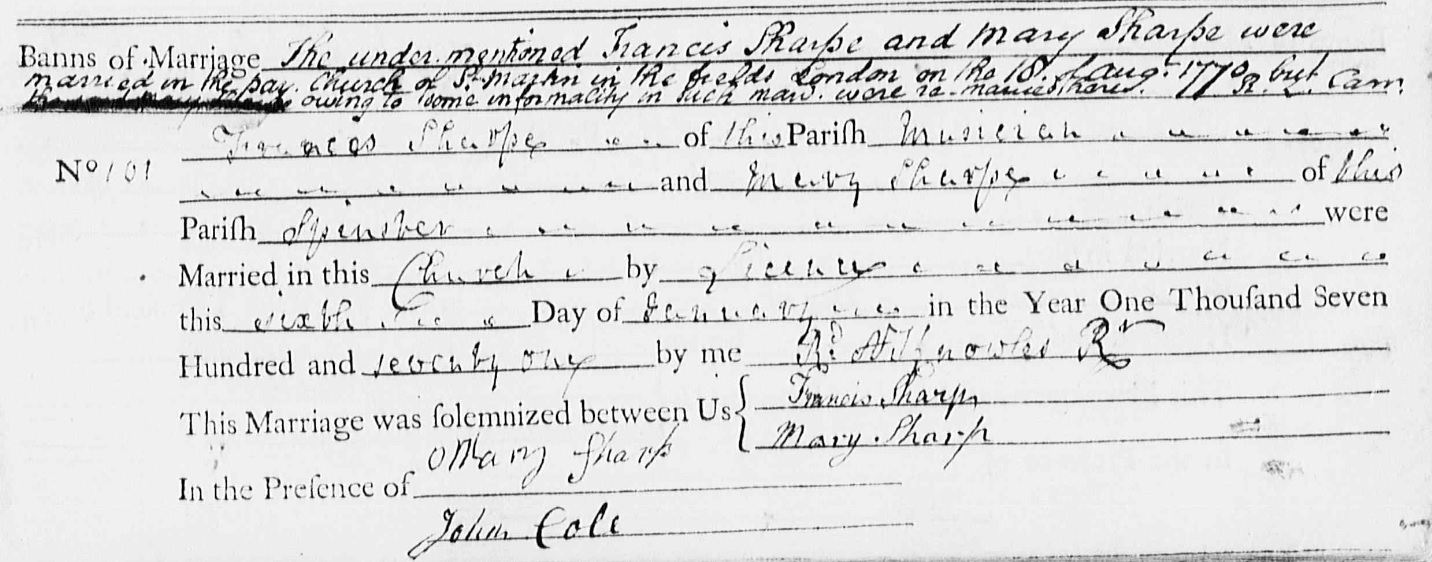 Banns of Marriage The under mentioned Francis Sharpe and Mary Sharpe were
married in the par. Church of St. Martin in the fields London on the 18. of Aug. 1770, but
owing to some informality in such marr. were re-married here.
Frances Sharpe of this Pariſh Musician
No 101 and Mary Sharpe of this
Pariſh Spinster were
Married in this Church by Licence
this sixth Day of January in the Year One Thouſand Seven
Hundred and seventy one by me Rd Knowles Rr
This Marriage was ſolemnized between Us { Francis Sharp
Mary Sharp
In the Preſence of Mary Sharp
John Cole